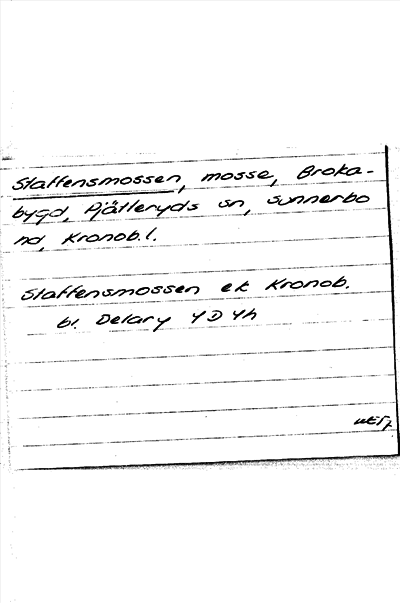 Staffensmossen, mosse, Broka-
bygd, Pjätteryds sn, Sunnerbo
hd, Kronob. l.
Staffensmossen ek Kronob.
bl. Delary 4D4h